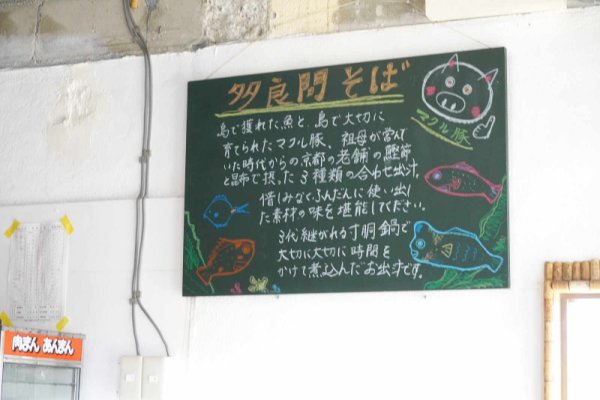 多良間そば
マクル豚
島で獲れた魚と、島で大切に
育てられたマクル豚、祖母が営んで
いた時代からの京都の老舗の鰹節
と昆布で摂った3種類の合わせ出汁。
惜しみなくふんだんに使い出し
た素材の味を堪能してください。
3代継がれる寸胴鍋で
大切に大切に時間を
かけて煮込んだお出汁です。
肉まん あんまん